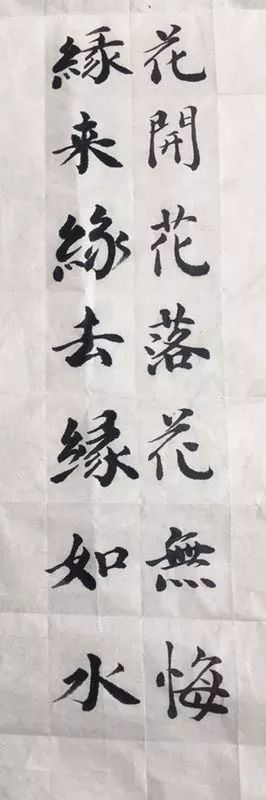 花開花落花無悔
緣来緣去緣如水